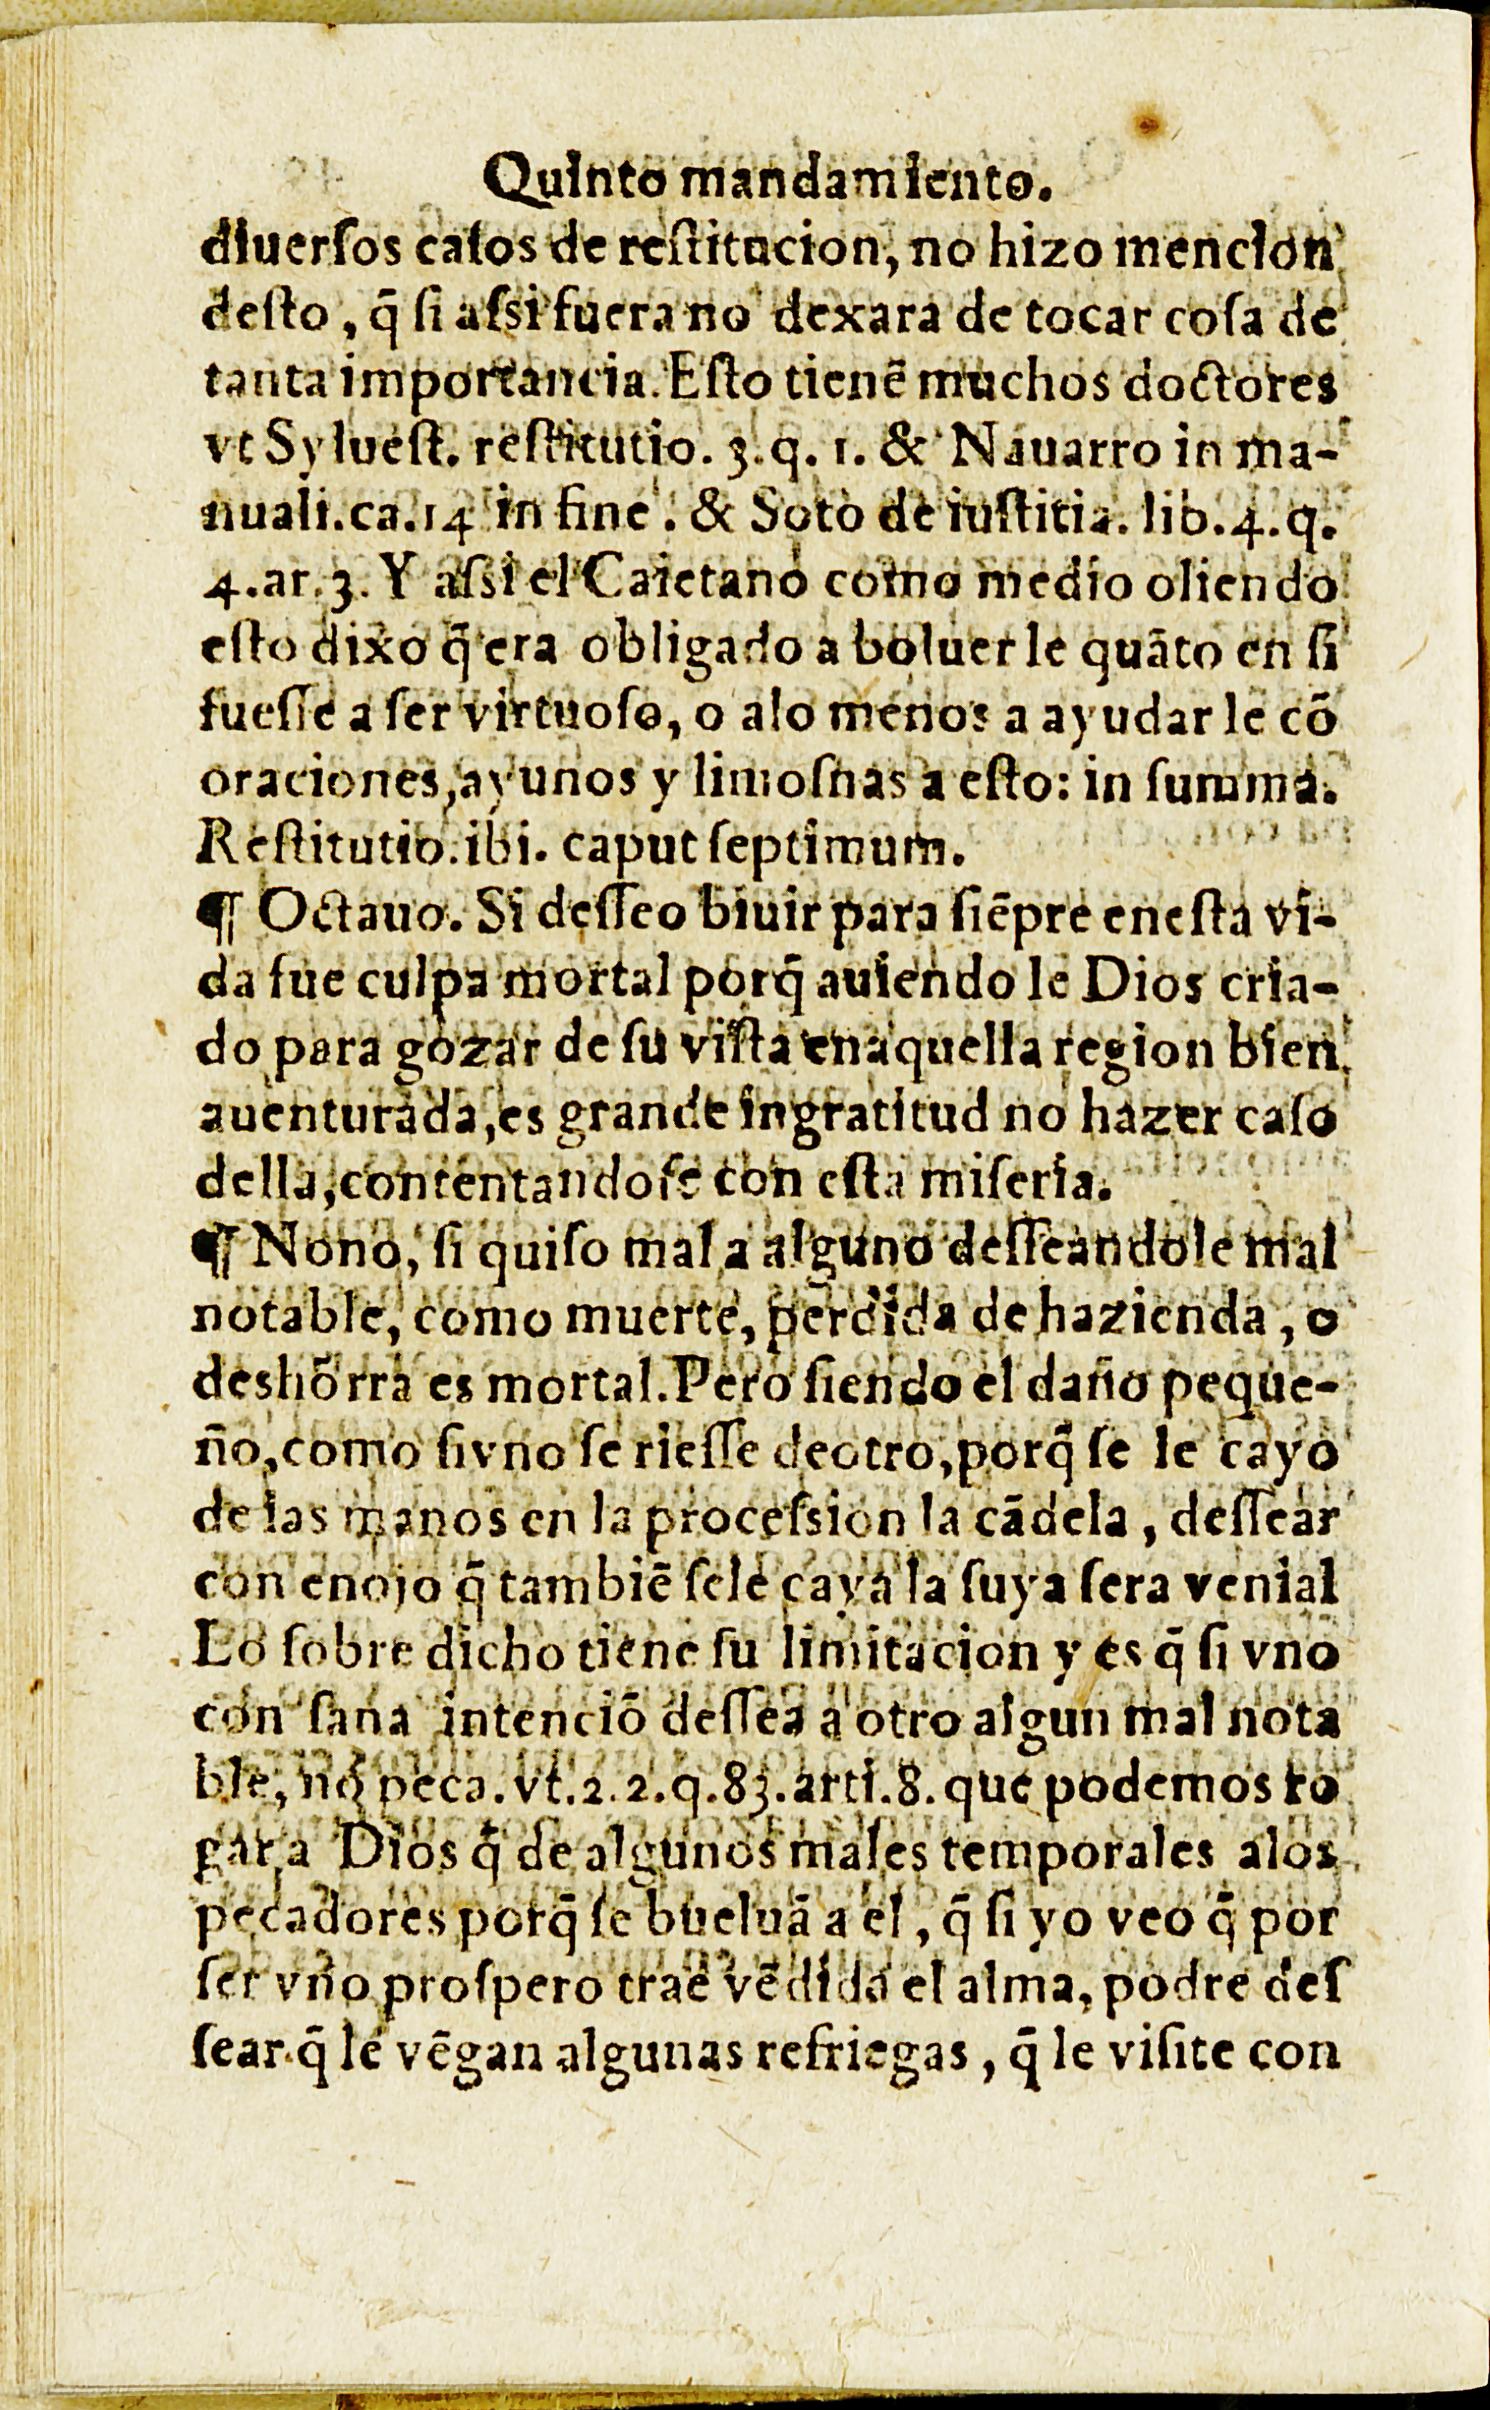 Quinto mandamiento.
diuerſos caſos de reſtitucion, no hizo mencion
deſto, q̄ ſi aſsi fuera no dexara de tocar coſa de
tanta importancia. Eſto tienẽ muchos doctores
vt Sylueſt. reſtitutio. 3. q. 1. & Nauarro in ma-
nuali. ca. 14 in fine. & Soto de iuſtitia. lib. 4. q.
4. ar. 3. Y aſsi el Caietano como medio oliendo
eſto dixo q̄ era obligado a boluer le quãto en ſi
fueſſe a ſer virtuoſo, o alo menos a ayudar le cõ
oraciones, ayunos y limoſnas a eſto: in ſumma.
Reſtitutio. ibi. caput ſeptimum.
¶ Octauo. Si deſſeo biuir para ſiẽpre eneſta vi-
da fue culpa mortal porq̄ auiendo le Dios cria-
do para gozar de ſu viſta enaquella region bien
auenturada, es grande ingratitud no hazer caſo
della, contentandoſe con eſta miſeria.
¶ Nono, ſi quiſo mal a alguno deſſeandole mal
notable, como muerte, perdida de hazienda, o
deshõrra es mortal. Pero ſiendo el daño peque-
ño, como ſivno ſe rieſſe deotro, porq̄ ſe le cayo
de las manos en la proceſsion la cãdela, deſſear
con enojo q̄ tambiẽ ſele caya la ſuya ſera venial
Lo ſobre dicho tiene ſu limitacion y es q̄ ſi vno
con ſana intenciõ deſſea a otro algun mal nota
ble, no peca. vt. 2. 2. q. 83. arti. 8. que podemos ro
gar a Dios q̄ de algunos males temporales alos
pecadores porq̄ ſe bueluã a el, q̄ ſi yo veo q̄ por
ſer vno proſpero trae vẽdida el alma, podre deſ
ſear q̄ le vẽgan algunas refriegas, q̄ le viſite con